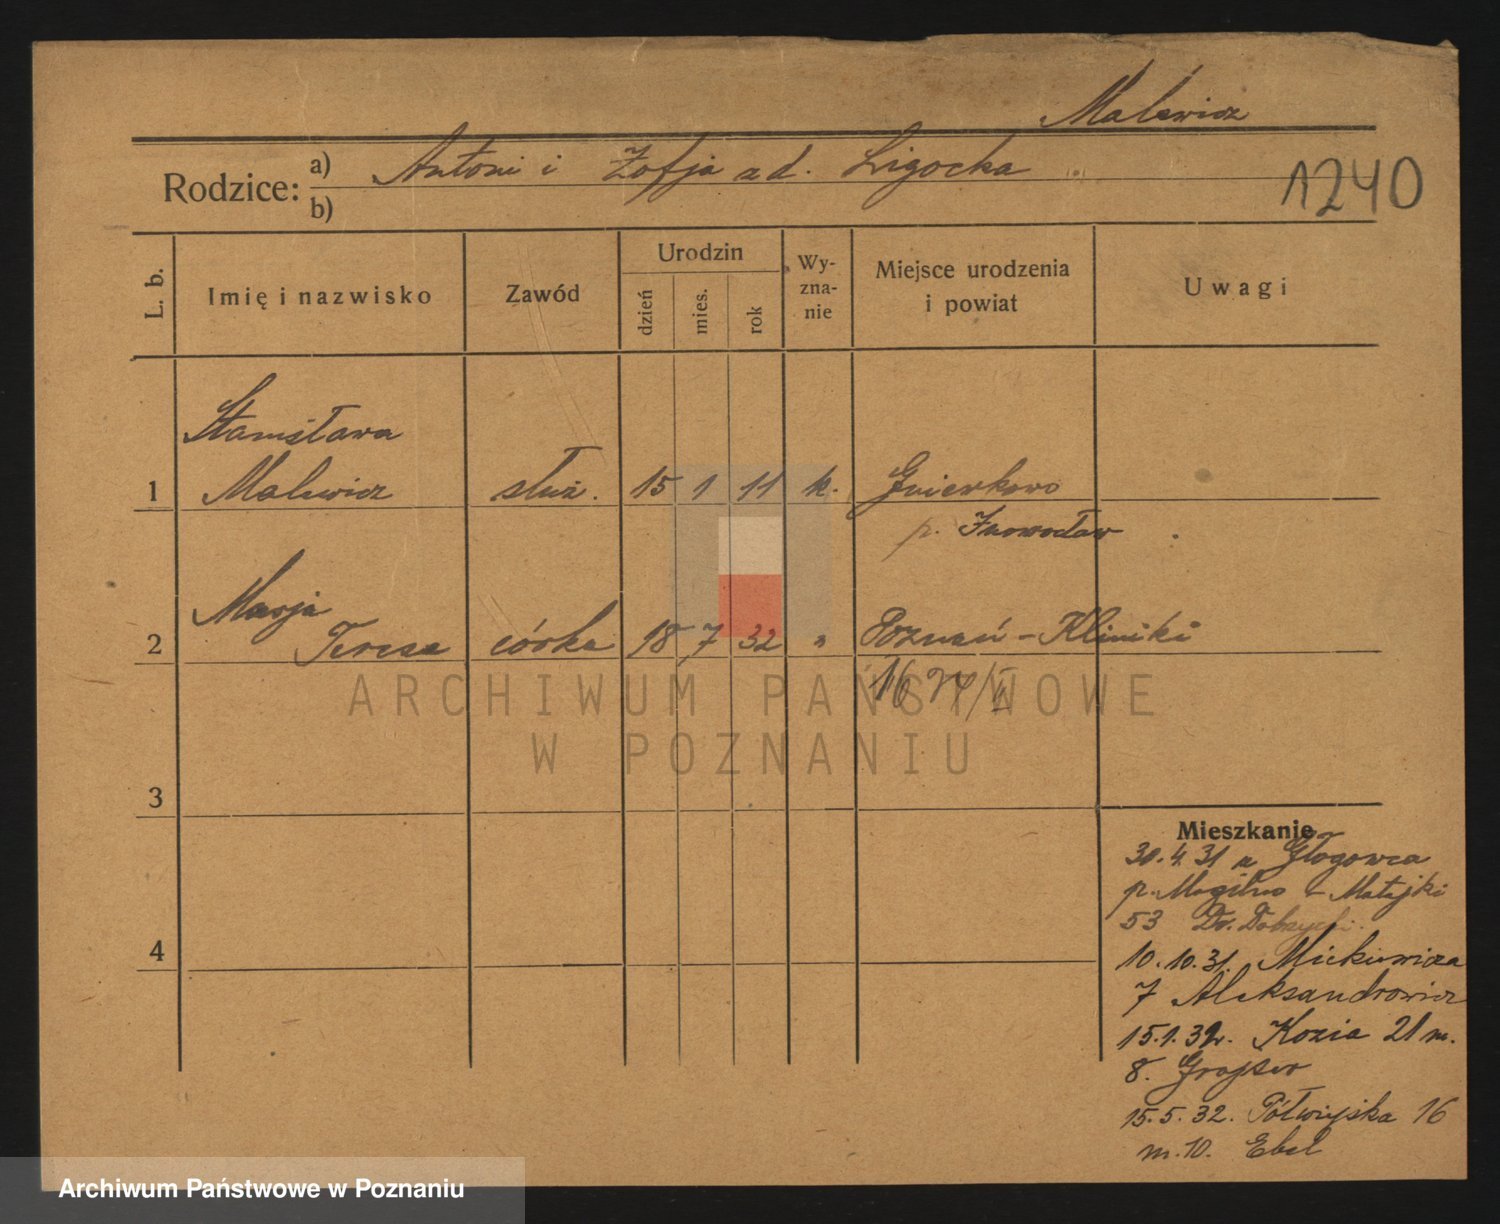 Malewicz
Rodzice: a) Antoni i Zofja zd. Ligocka
b)
1240
L. b.
Imię i nazwisko
Zawód
Urodzin
dzień
mies.
rok
Wy-
zna-
nie
Miejsce urodzenia
i powiat
Uwagi
Stanisława
1 Malewicz służ. 15 1 11 k. Gniewkowo
p. Inowrocław
Marja
2 Teresa córka 18 7 32 " Poznań - Kliniki
ARCHIWUM PAŃSTWOWE
W POZNANIU
3
4
Mieszkanie
30.4.31 z Głogowca
p. Mogilno - Matejki
53 Dr. Dobrzycki
10.10.31. Mickiewicza
7 Aleksandrowicz
15.1.32. Kozia 21 m.
8. Grajser
15.5.32. Półwiejska 16
m.10. Ebel
Archiwum Państwowe w Poznaniu